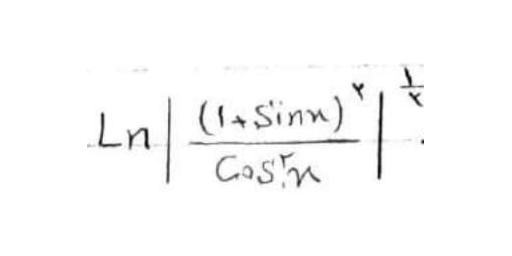 Ln | (1+Sinx)^۲ / Cos^۲x |^{۱/۲}